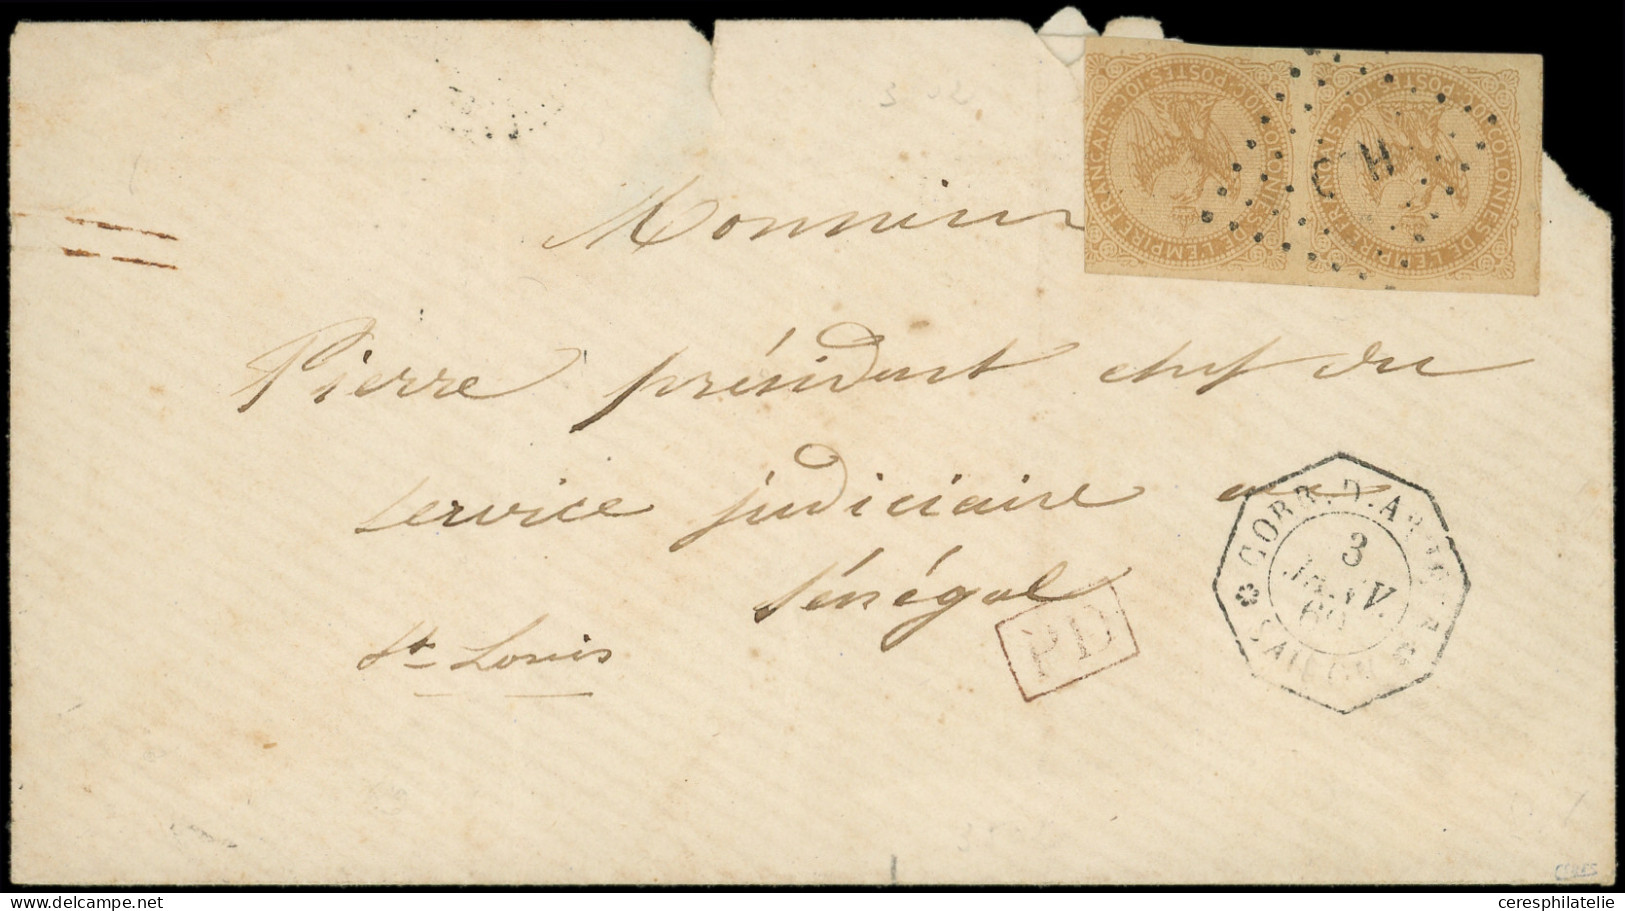 COLONIES DE L'EMPIRE FRANÇAIS · POSTES · 10 C ·
COLONIES DE L'EMPIRE FRANÇAIS · POSTES · 10 C ·
CCH
Monsieur
Pierre président chef du
service judiciaire au
Sénégal
St Louis
PD
CORR. D. ARMEES
3
JANV.
SAIGON
CERES
ceresphilatelie